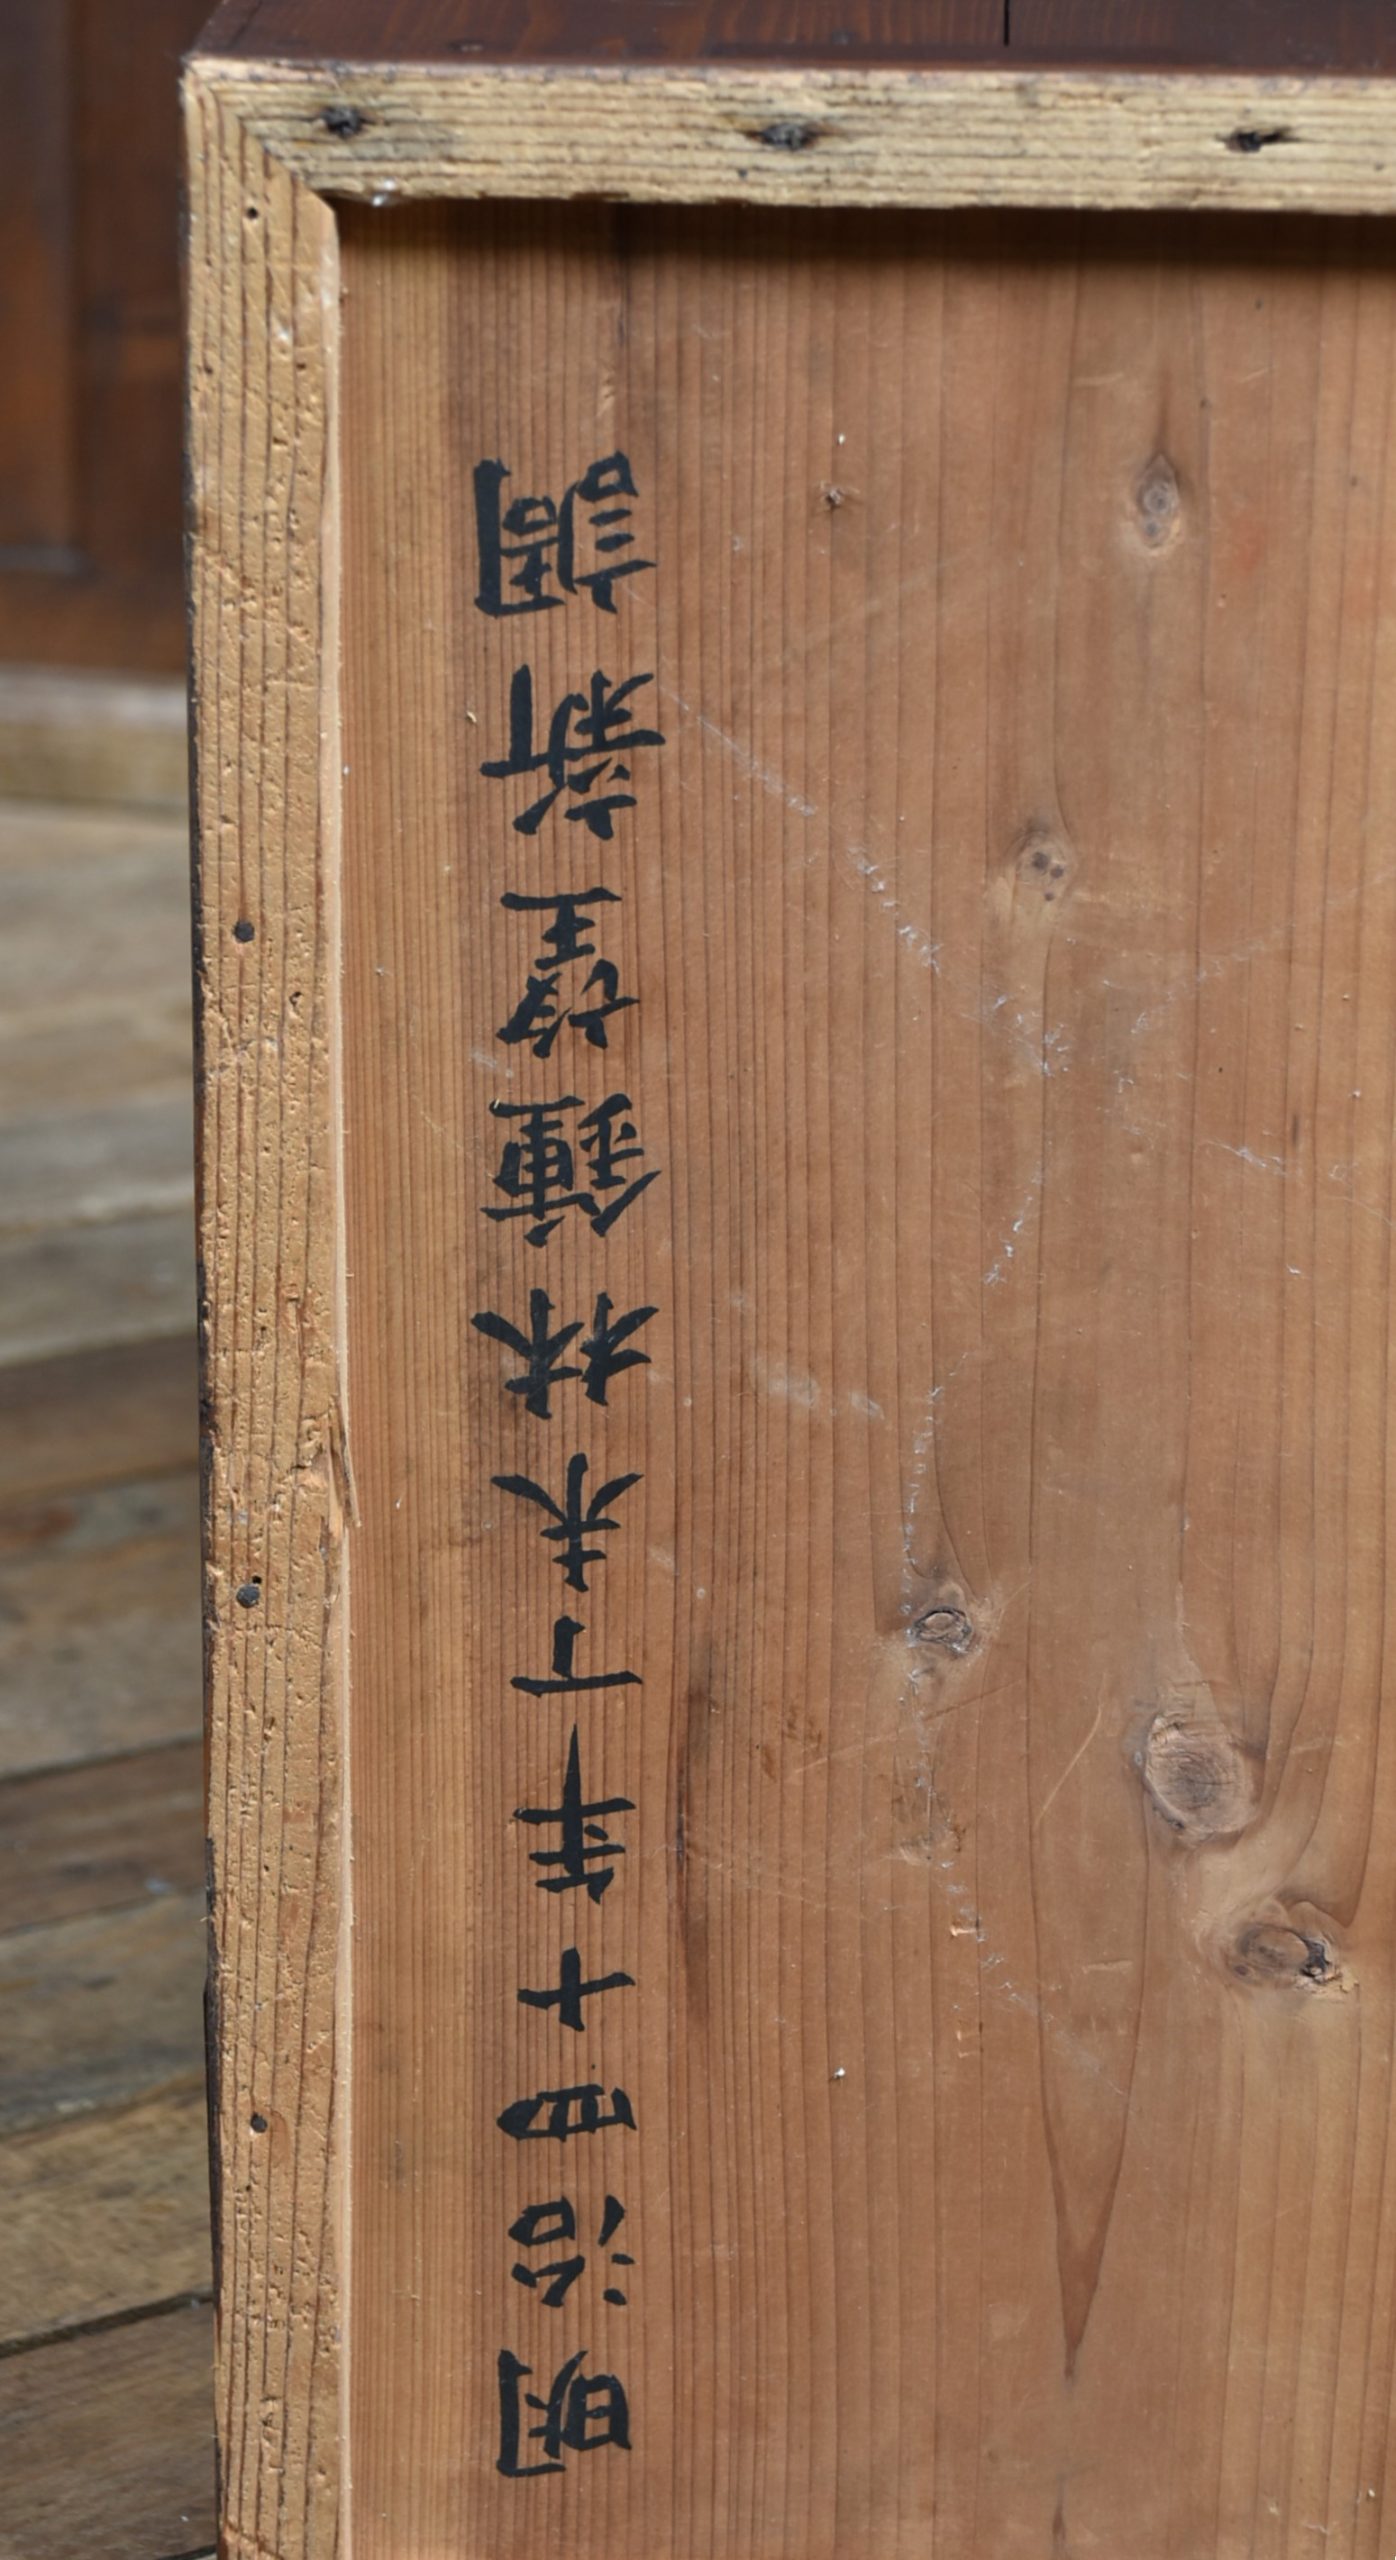 明治四十年丁未林鍾望新調